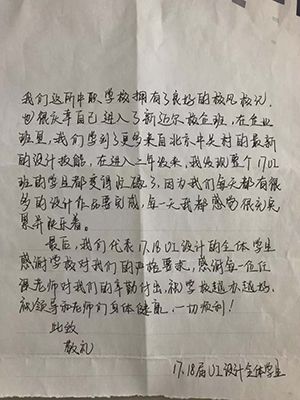 我们这所中职学校拥有了良好的校风校纪。
也很庆幸自己进入了新迈尔校企班，在企业
班里，我们学到了更多来自北京中关村的最新
的设计技能，在进入二年级来，我发现整个17UI
班的学生都变得忙碌了，因为我们每天都有很
多的设计作品要完成，每一天我都感觉很充实
累并快乐着。
最后，我们代表17.18UI设计的全体学生
感谢学校对我们的严格要求，感谢每一位任
课老师对我们的辛勤付出，祝学校越办越好，
祝领导和老师们身体健康，一切顺利！
此致
敬礼
17.18届UI设计全体学生